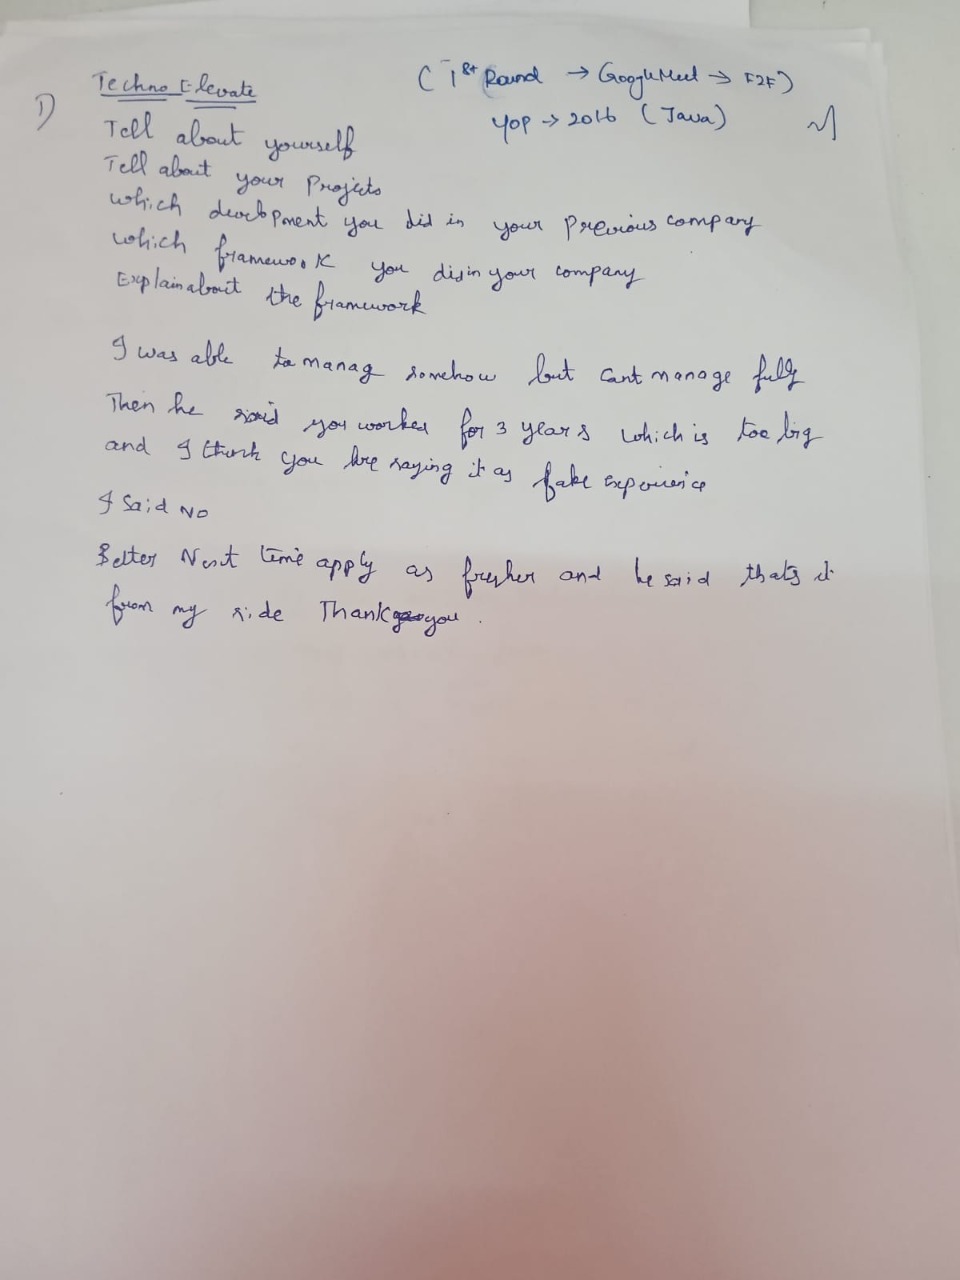 Techno Elevate (1st Round → Google Meet → F2F)
1) YOP → 2016 (Java)
Tell about yourself
Tell about your Projects
which development you did in your previous company
which framework you did in your company
Explain about the framework
I was able to manag somehow but cant manage fully
Then he said you worked for 3 years which is too big
and I think you are saying it as fake experience
I said No
Better Next time apply as fresher and he said thats it
from my side Thank you.